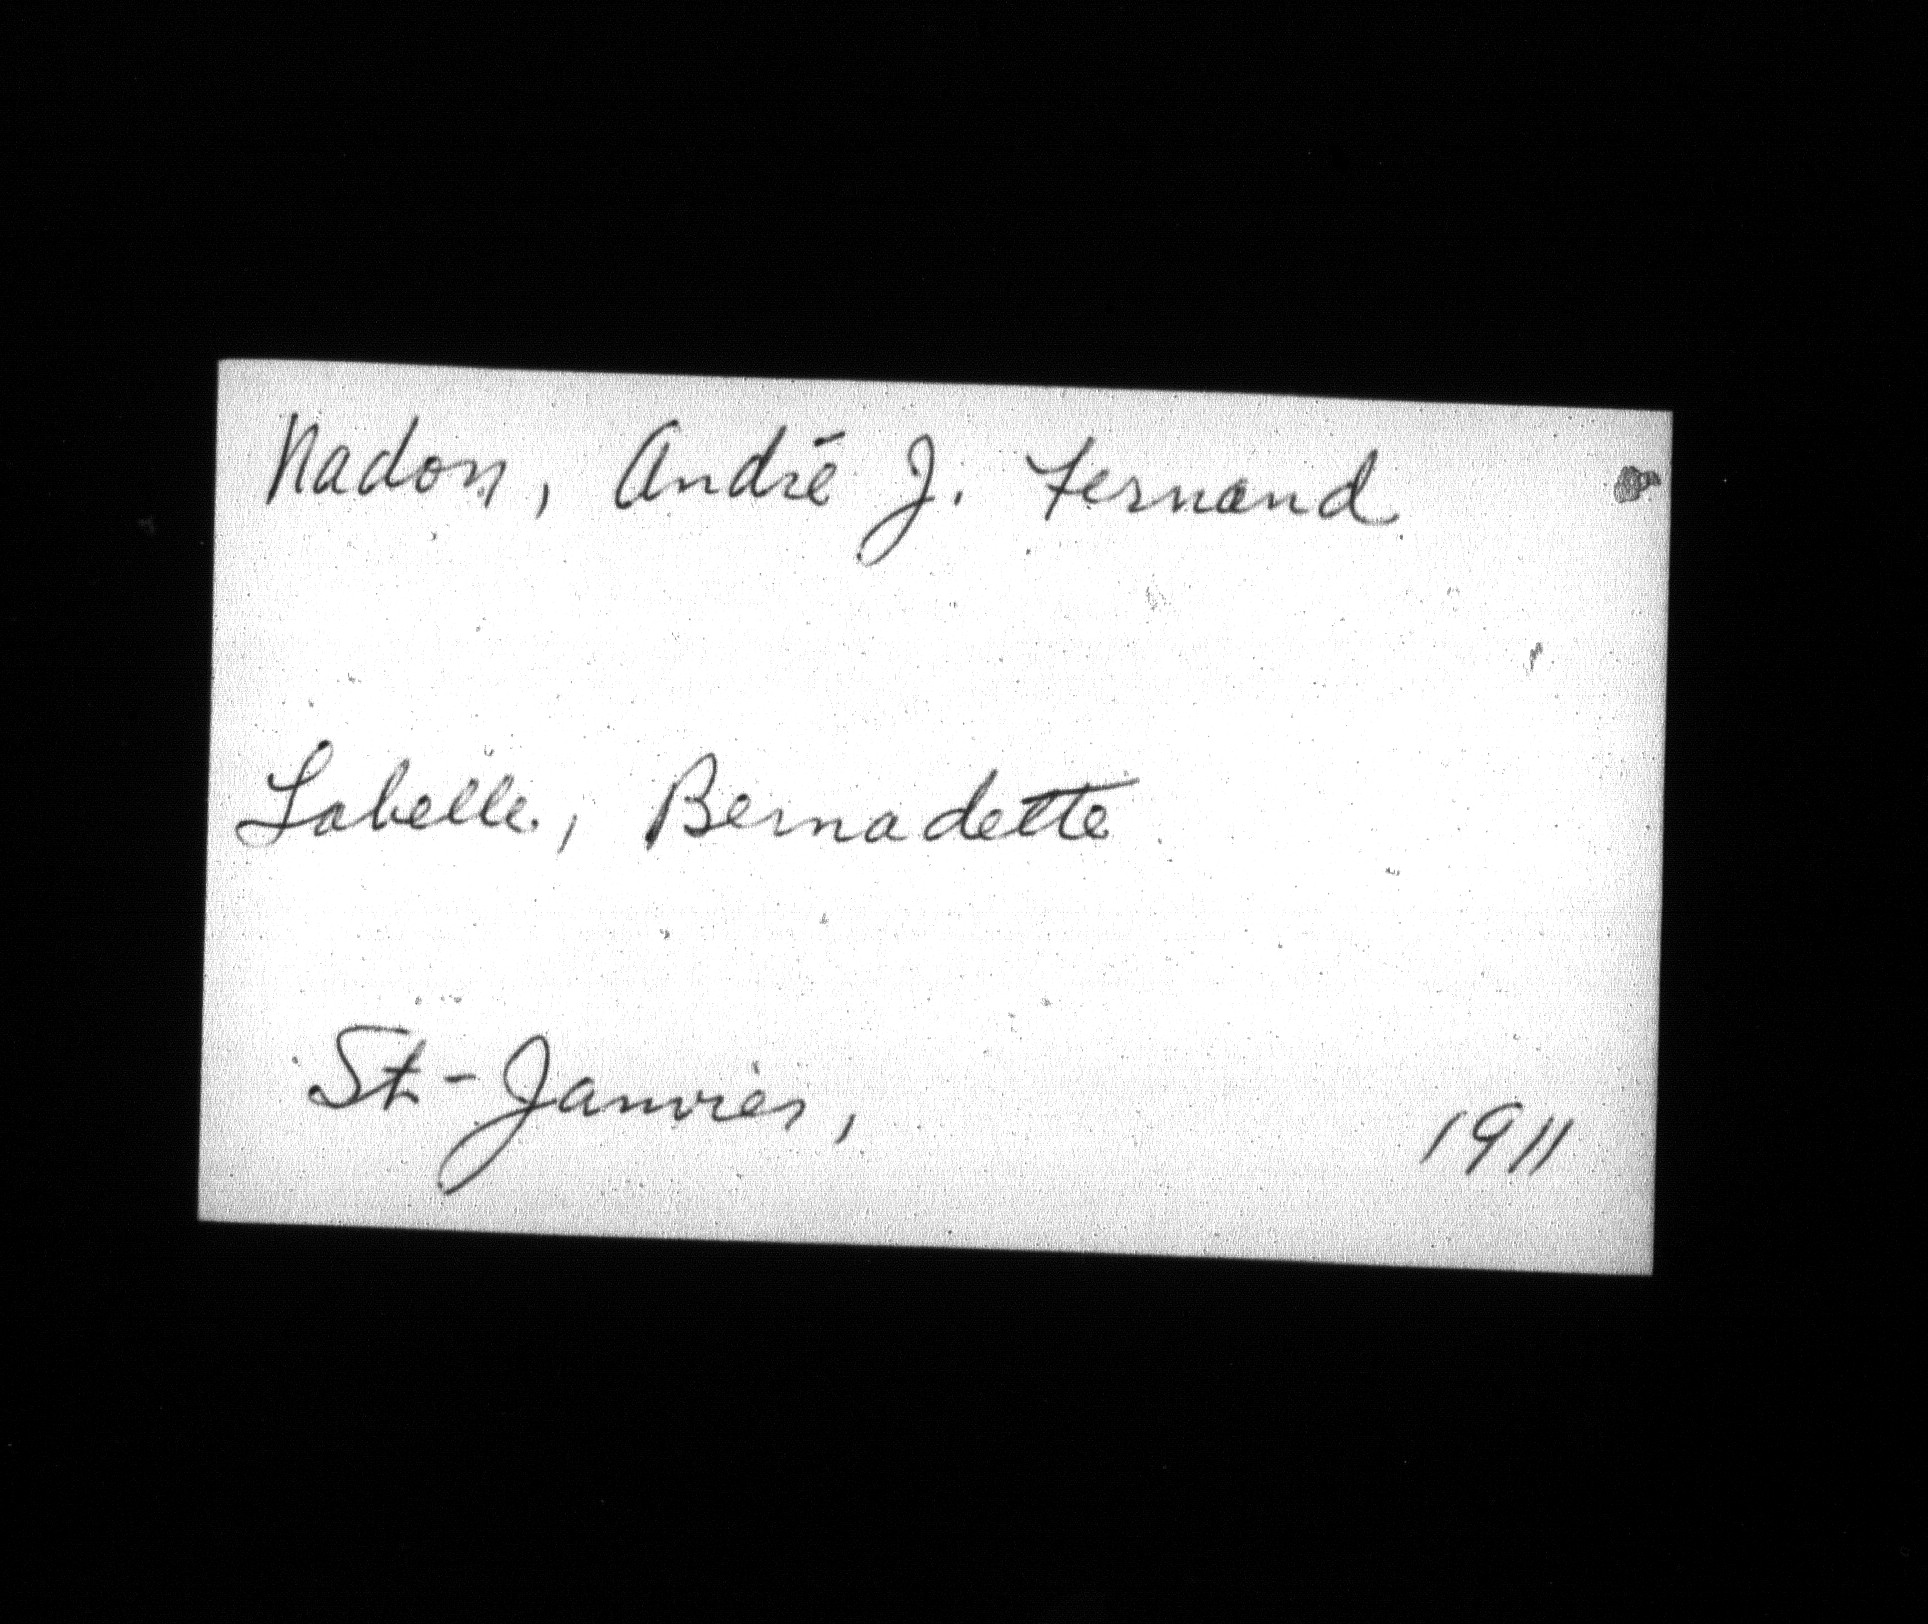 Nadon, André J. Fernand
Labelle, Bernadette
St-Janvier, 1911